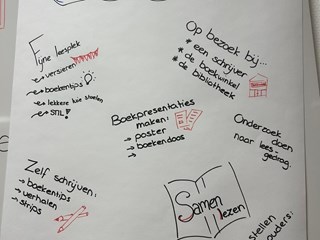 Fijne leesplek
→ versieren
→ boekentips
→ lekkere luie stoelen
→ STIL!
Op bezoek bij...
* een schrijver
* de boekwinkel
* de bibliotheek
Boekpresentaties
maken:
→ poster
→ boekendoos
→
Onderzoek
doen
naar lees-
gedrag.
Zelf schrijven:
→ boekentips
→ verhalen
→ strips
Samen
lezen
stellen
ouders: